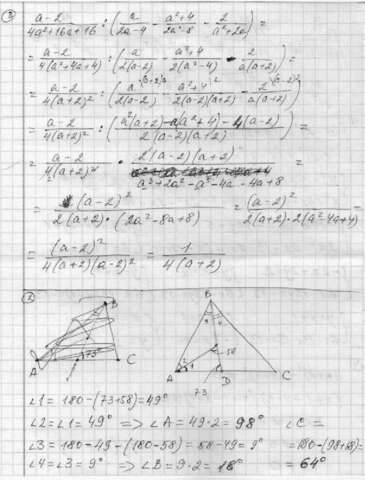 ③ (a-2)/(4a²+16a+16) : (a/(2a-4) - (a²+4)/(2a²-8) - 2/(a²+2a)) =
= (a-2)/(4(a²+4a+4)) : (a/(2(a-2)) - (a²+4)/(2(a²-4)) - 2/(a(a+2))) =
= (a-2)/(4(a+2)²) : (a/(2(a-2)) - (a²+4)/(2(a-2)(a+2)) - 2/(a(a+2))) =
= (a-2)/(4(a+2)²) : (a²(a+2)-a(a²+4)-4(a-2))/(2(a-2)(a+2)) =
= (a-2)/(4(a+2)²) · 2(a-2)(a+2)/(a³+2a²-a³-4a-4a+8) =
= (a-2)²/(2(a+2)·(2a²-8a+8)) = (a-2)²/(2(a+2)·2(a²-4a+4)) =
= (a-2)²/(4(a+2)(a-2)²) = 1/(4(a+2))
B
73°
A
C
B
3 4
58
2
1
A
D
C
73
∠1 = 180-(73+58)=49°
∠2=∠1=49° => ∠A=49·2=98° ∠C=
∠3=180-49-(180-58)=58-49=9° =180-(98+18)=
∠4=∠3=9° => ∠B=9·2=18° =64°